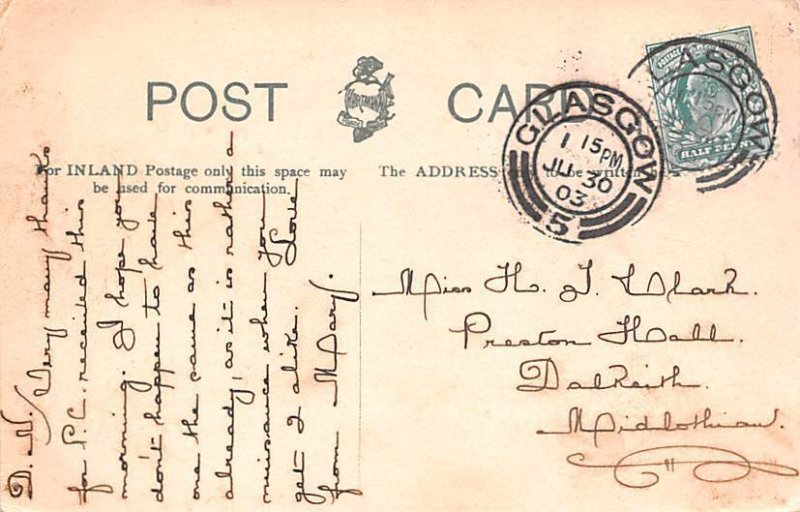 POST CARD
For INLAND Postage only this space may
be used for communication.
The ADDRESS only to be written here.
GLASGOW
1 15PM
JU 30
03
5
GLASGOW
15PM
POSTAGE
HALF PENNY
D. N. Very many thanks
for P.C. received this
morning. I hope you
don't happen to have
one the same as this
already, as it is rather a
nuisance when you
get 2 alike. Love
from Mary.
Miss H. J. Clark.
Preston Hall.
Dalkeith.
Midlothian.